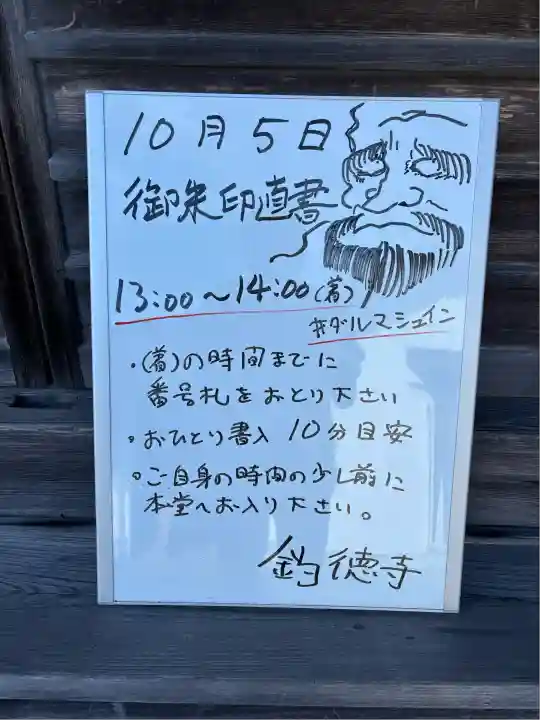 10月5日
御朱印直書
13:00〜14:00(着)
#ダルマシェイン
・(着)の時間までに
番号札をおとり下さい
・おひとり書入 10分目安
・ご自身の時間の少し前に
本堂へお入り下さい。
釣徳寺